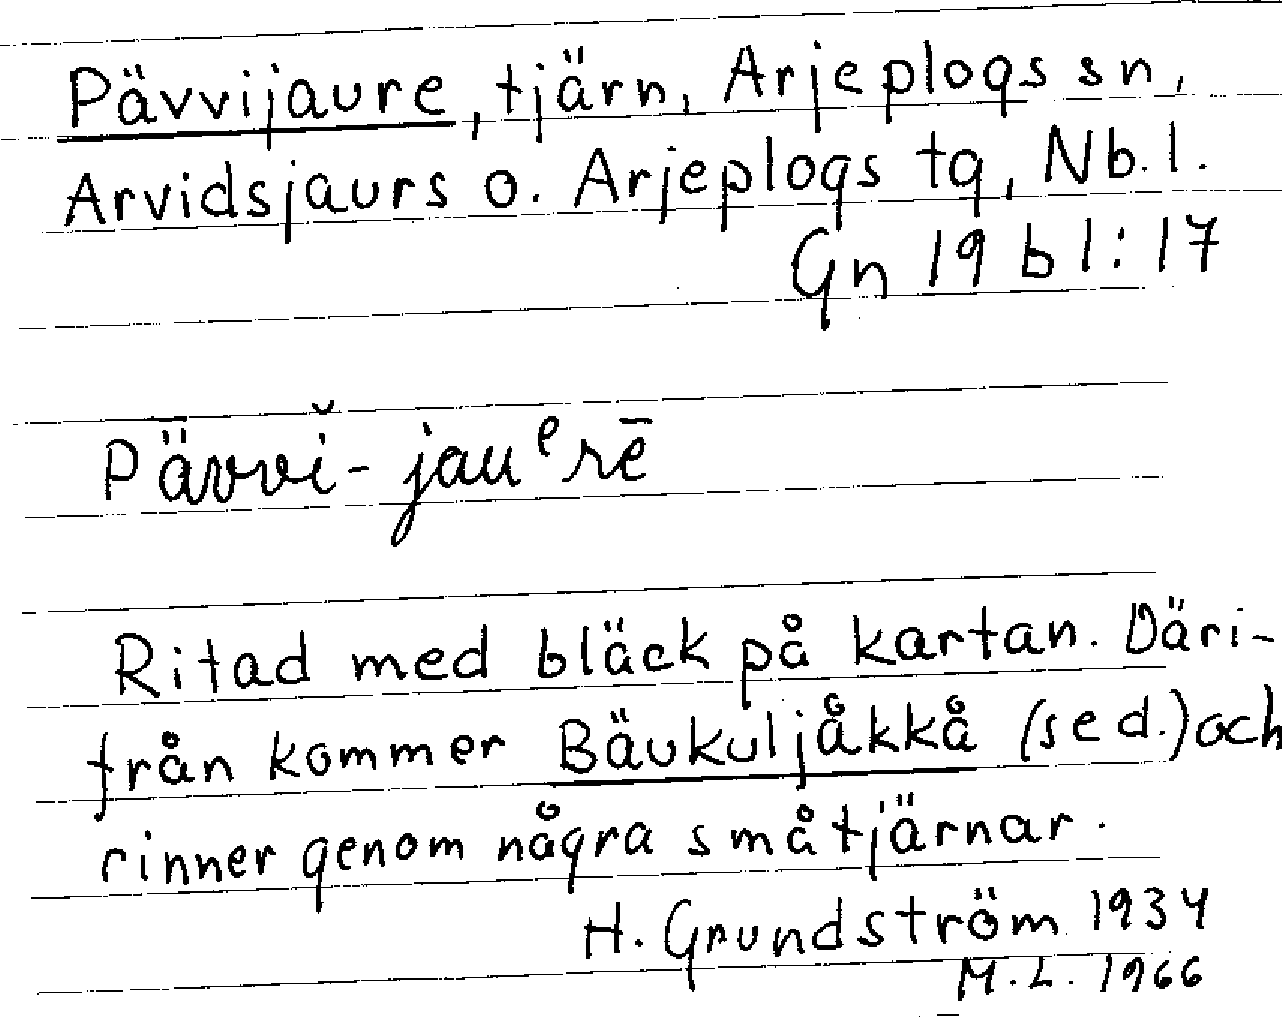 Pävvijaure, tjärn, Arjeplogs sn,
Arvidsjaurs o. Arjeplogs tg, Nb. l.
Gn 19 bl: 17
Pävvĭ-jauᵉrē
Ritad med bläck på kartan. Däri-
från kommer Bäukuljåkkå (se d.) och
rinner genom några småtjärnar.
H. Grundström 1934
M. L. 1966